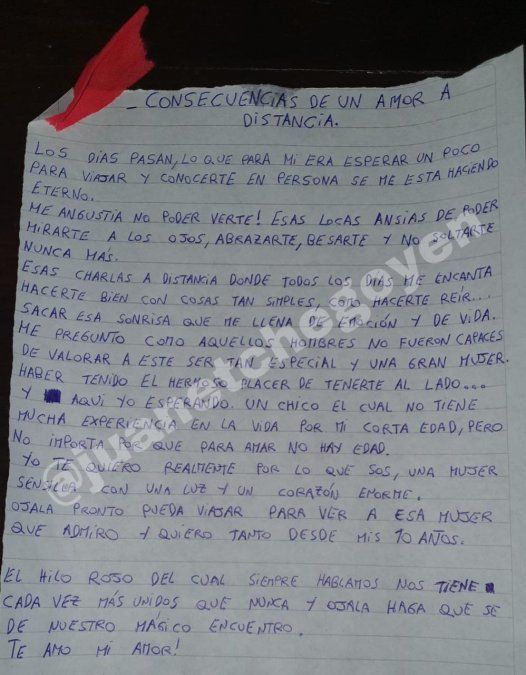 _ CONSECUENCIAS DE UN AMOR A
DISTANCIA.
LOS DIAS PASAN, LO QUE PARA MI ERA ESPERAR UN POCO
PARA VIAJAR Y CONOCERTE EN PERSONA SE ME ESTA HACIENDO
ETERNO.
ME ANGUSTIA NO PODER VERTE! ESAS LOCAS ANSIAS DE PODER
MIRARTE A LOS OJOS, ABRAZARTE, BESARTE Y NO SOLTARTE
NUNCA MAS.
ESAS CHARLAS A DISTANCIA DONDE TODOS LOS DIAS ME ENCANTA
HACERTE BIEN CON COSAS TAN SIMPLES, COMO HACERTE REÍR...
SACAR ESA SONRISA QUE ME LLENA DE EMOCIÓN Y DE VIDA.
ME PREGUNTO COMO AQUELLOS HOMBRES NO FUERON CAPACES
DE VALORAR A ESTE SER TAN ESPECIAL Y UNA GRAN MUJER.
HABER TENIDO EL HERMOSO PLACER DE TENERTE AL LADO...
Y AQUI YO ESPERANDO. UN CHICO EL CUAL NO TIENE
MUCHA EXPERIENCIA EN LA VIDA POR MI CORTA EDAD, PERO
NO IMPORTA POR QUE PARA AMAR NO HAY EDAD.
YO TE QUIERO REALMENTE POR LO QUE SOS, UNA MUJER
SENSIBLE CON UNA LUZ Y UN CORAZÓN ENORME.
OJALA PRONTO PUEDA VIAJAR PARA VER A ESA MUJER
QUE ADMIRO Y QUIERO TANTO DESDE MIS 10 AÑOS.
EL HILO ROJO DEL CUAL SIEMPRE HABLAMOS NOS TIENE
CADA VEZ MÁS UNIDOS QUE NUNCA Y OJALA HAGA QUE SE
DE NUESTRO MAGICO ENCUENTRO.
TE AMO MI AMOR!
@juanetchegoyen